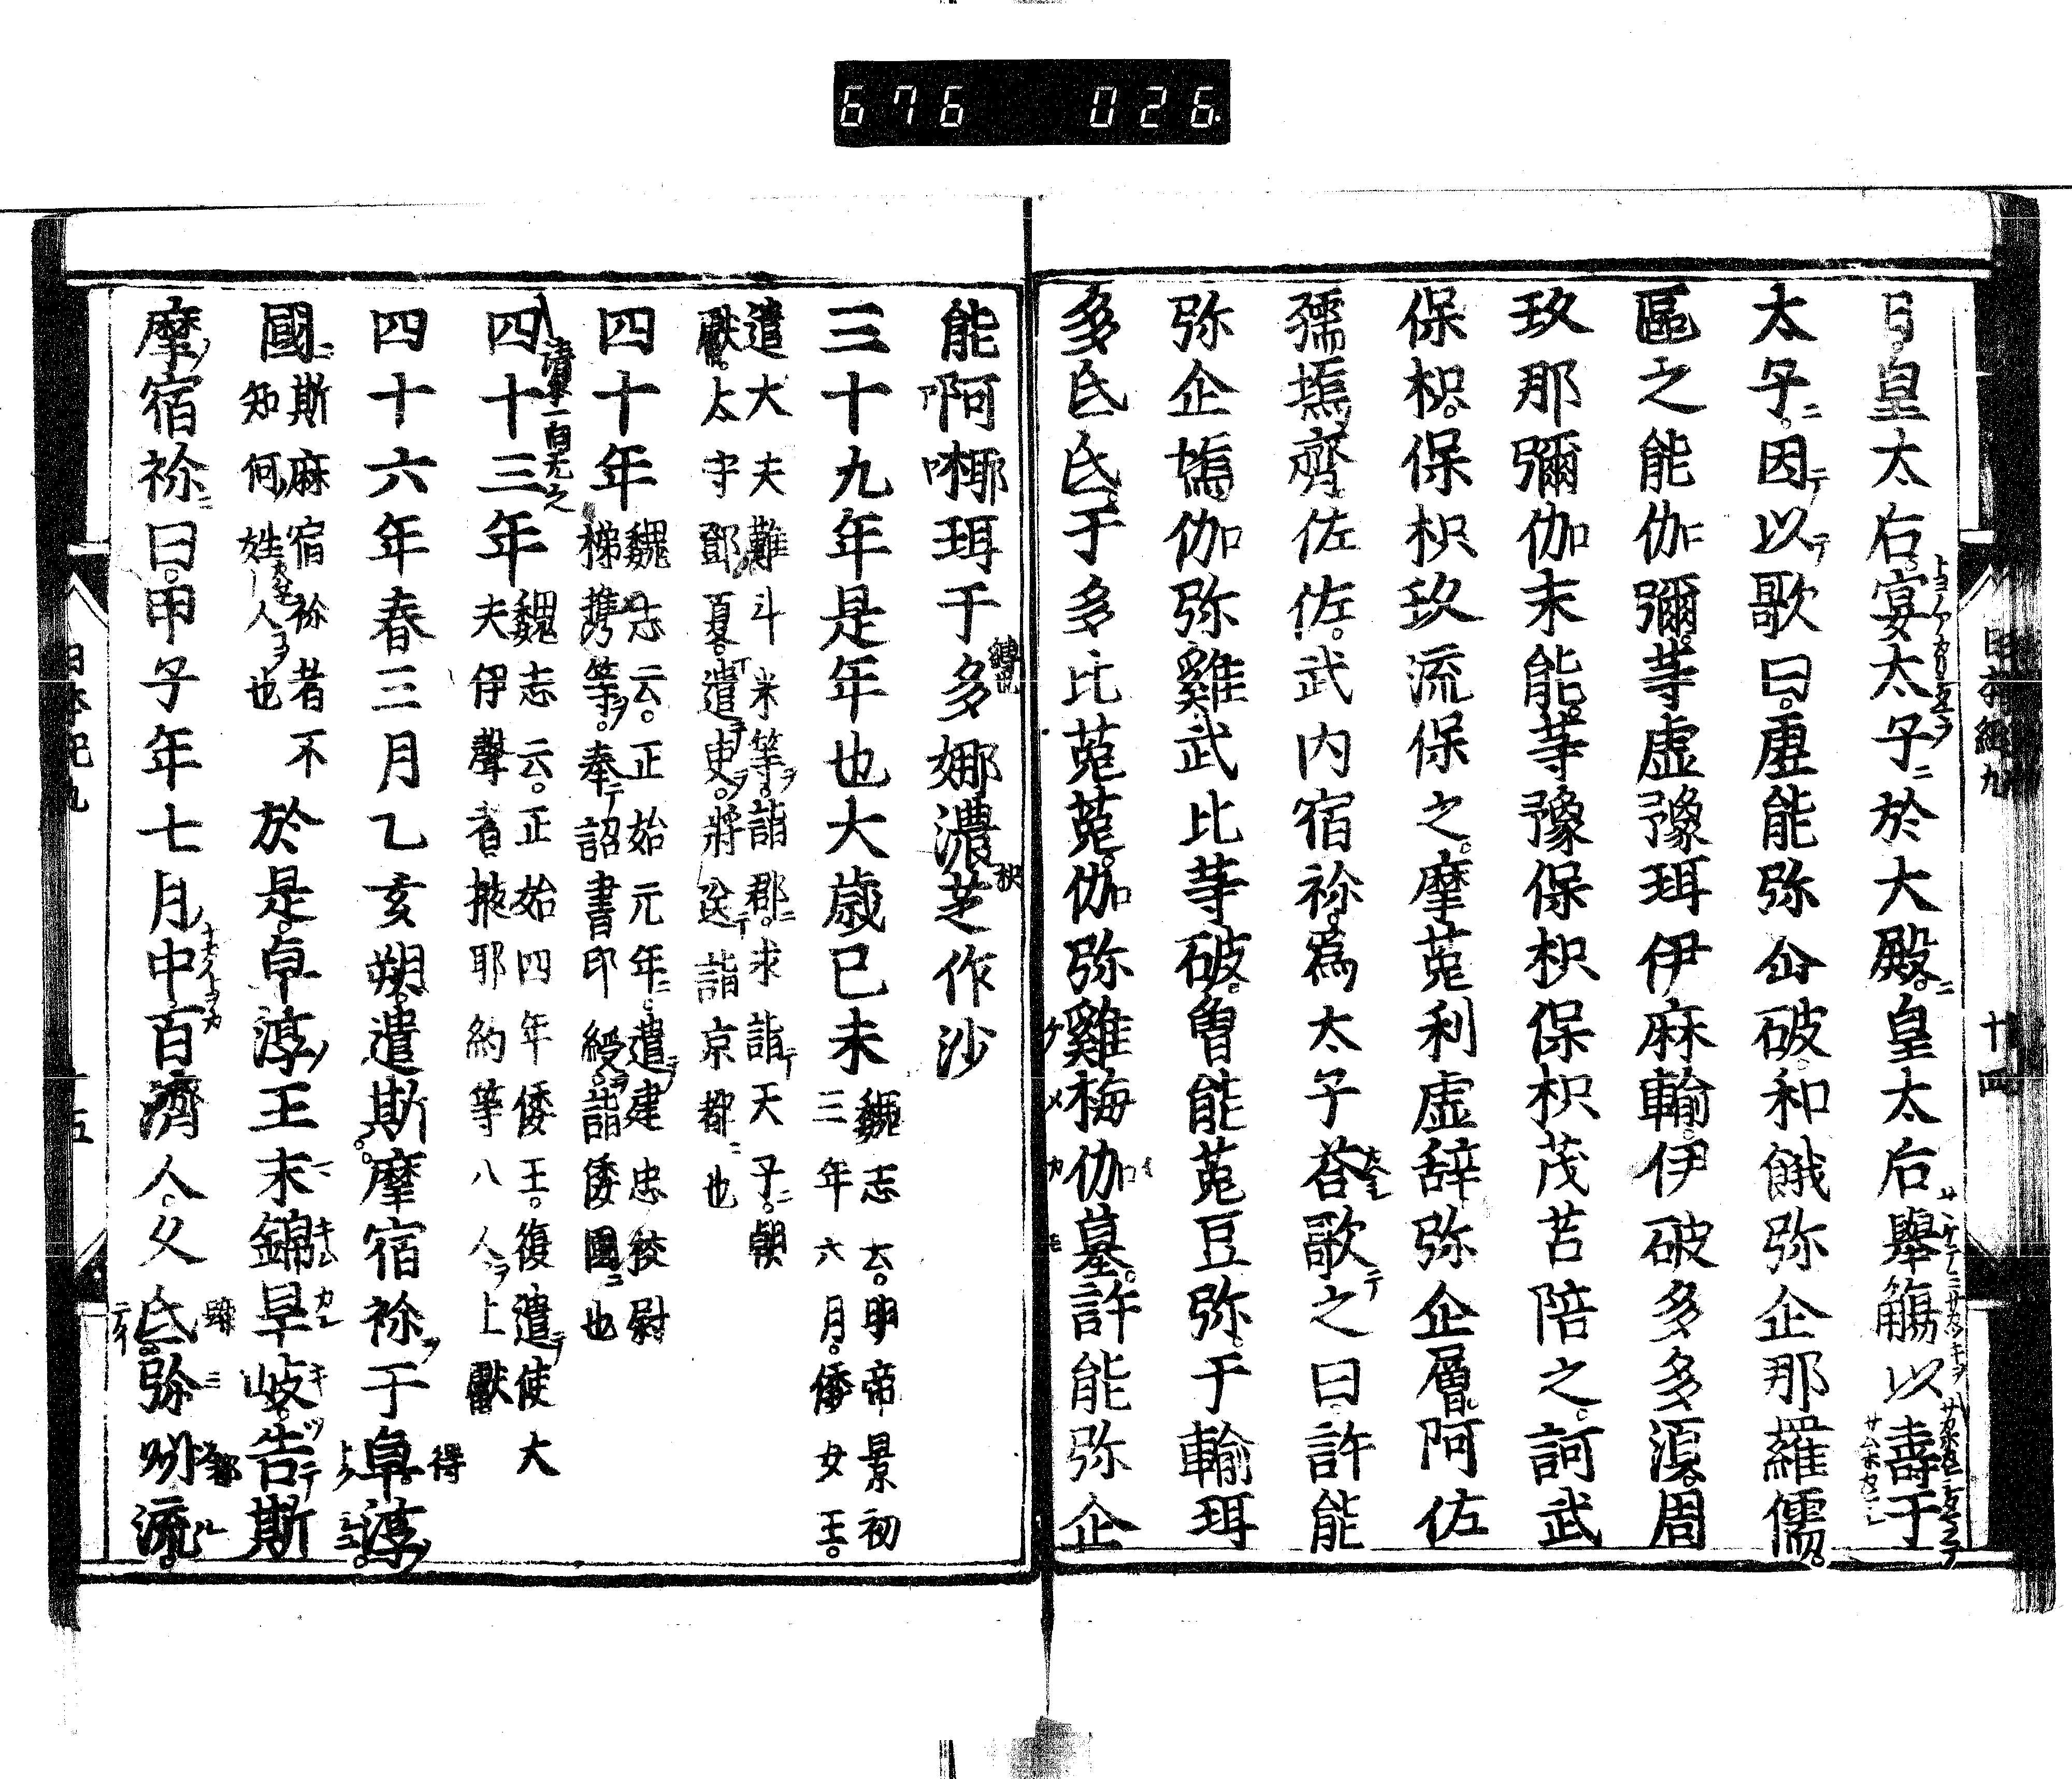 676 026
日皇太后宴太子於大殿皇太后舉觴以壽于
太子因以歌曰虚能弥企破和餓弥企那羅儒
區之能伽彌等虚豫珥伊麻輸伊破多多湏周
玖那彌伽未能等豫保枳保枳茂苫陪之訶武
保枳保枳玖流保之摩菟利虚辞弥企層阿佐
孺塢齊佐佐武内宿祢為太子荅歌之曰許能
弥企塢伽弥雞武比等破曽能菟豆弥于輸珥
多氐氐于多比菟菟伽弥雞梅伽墓許能弥企
能阿椰珥于多娜濃芝作沙
三十九年是年也大歳己未魏志云明帝景初
三年六月倭女王
遣大夫難斗米等詣郡求詣天子朝
獻太守鄧夏遣吏將送詣京都也
四十年魏志云正始元年遣建忠校尉
梯携等奉詔書印綬詣倭國也
四十三年魏志云正始四年倭王復遣使大
夫伊聲者掖耶約等八人上獻
四十六年春三月乙亥朔遣斯摩宿祢于卓淳
國斯麻宿祢者不
知何姓人也於是卓淳王末錦旱岐告斯
摩宿祢曰甲子年七月中百濟人久氐弥州流
日本紀九 十四
日本紀九 十五